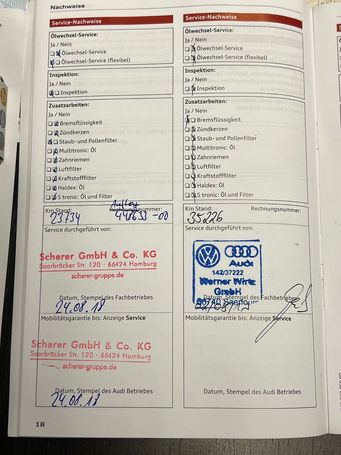 Nachweise
Service-Nachweise
Ölwechsel-Service:
Ja / Nein
Ölwechsel-Service
Ölwechsel-Service (flexibel)
Inspektion:
Ja / Nein
Inspektion
Zusatzarbeiten:
Ja / Nein
Bremsflüssigkeit
Zündkerzen
Staub- und Pollenfilter
Multitronic: Öl
Zahnriemen
Luftfilter
Kraftstofffilter
Haldex: Öl
S tronic: Öl und Filter
Km Stand:
23734
Service durchgeführt von:
Scherer GmbH & Co. KG
Saarbrücker Str. 120 - 66424 Homburg
scherer-gruppe.de
Datum, Stempel des Fachbetriebes
24.08.18
Mobilitätsgarantie bis: Anzeige Service
Scherer GmbH & Co. KG
Saarbrücker Str. 120 - 66424 Homburg
scherer-gruppe.de
Datum, Stempel des Audi Betriebes
24.08.18
18
Service-Nachweise
Ölwechsel-Service:
Ja / Nein
Ölwechsel-Service
Ölwechsel-Service (flexibel)
Inspektion:
Ja / Nein
Inspektion
Zusatzarbeiten:
Ja / Nein
Bremsflüssigkeit
Zündkerzen
Staub- und Pollenfilter
Multitronic: Öl
Zahnriemen
Luftfilter
Kraftstofffilter
Haldex: Öl
S tronic: Öl und Filter
Km Stand: Rechnungsnummer:
35226
Service durchgeführt von:
Audi
142/37222
Werner Wirtz
GmbH
Datum, Stempel des Fachbetriebes
Mobilitätsgarantie bis: Anzeige Service
Datum, Stempel des Audi Betriebes